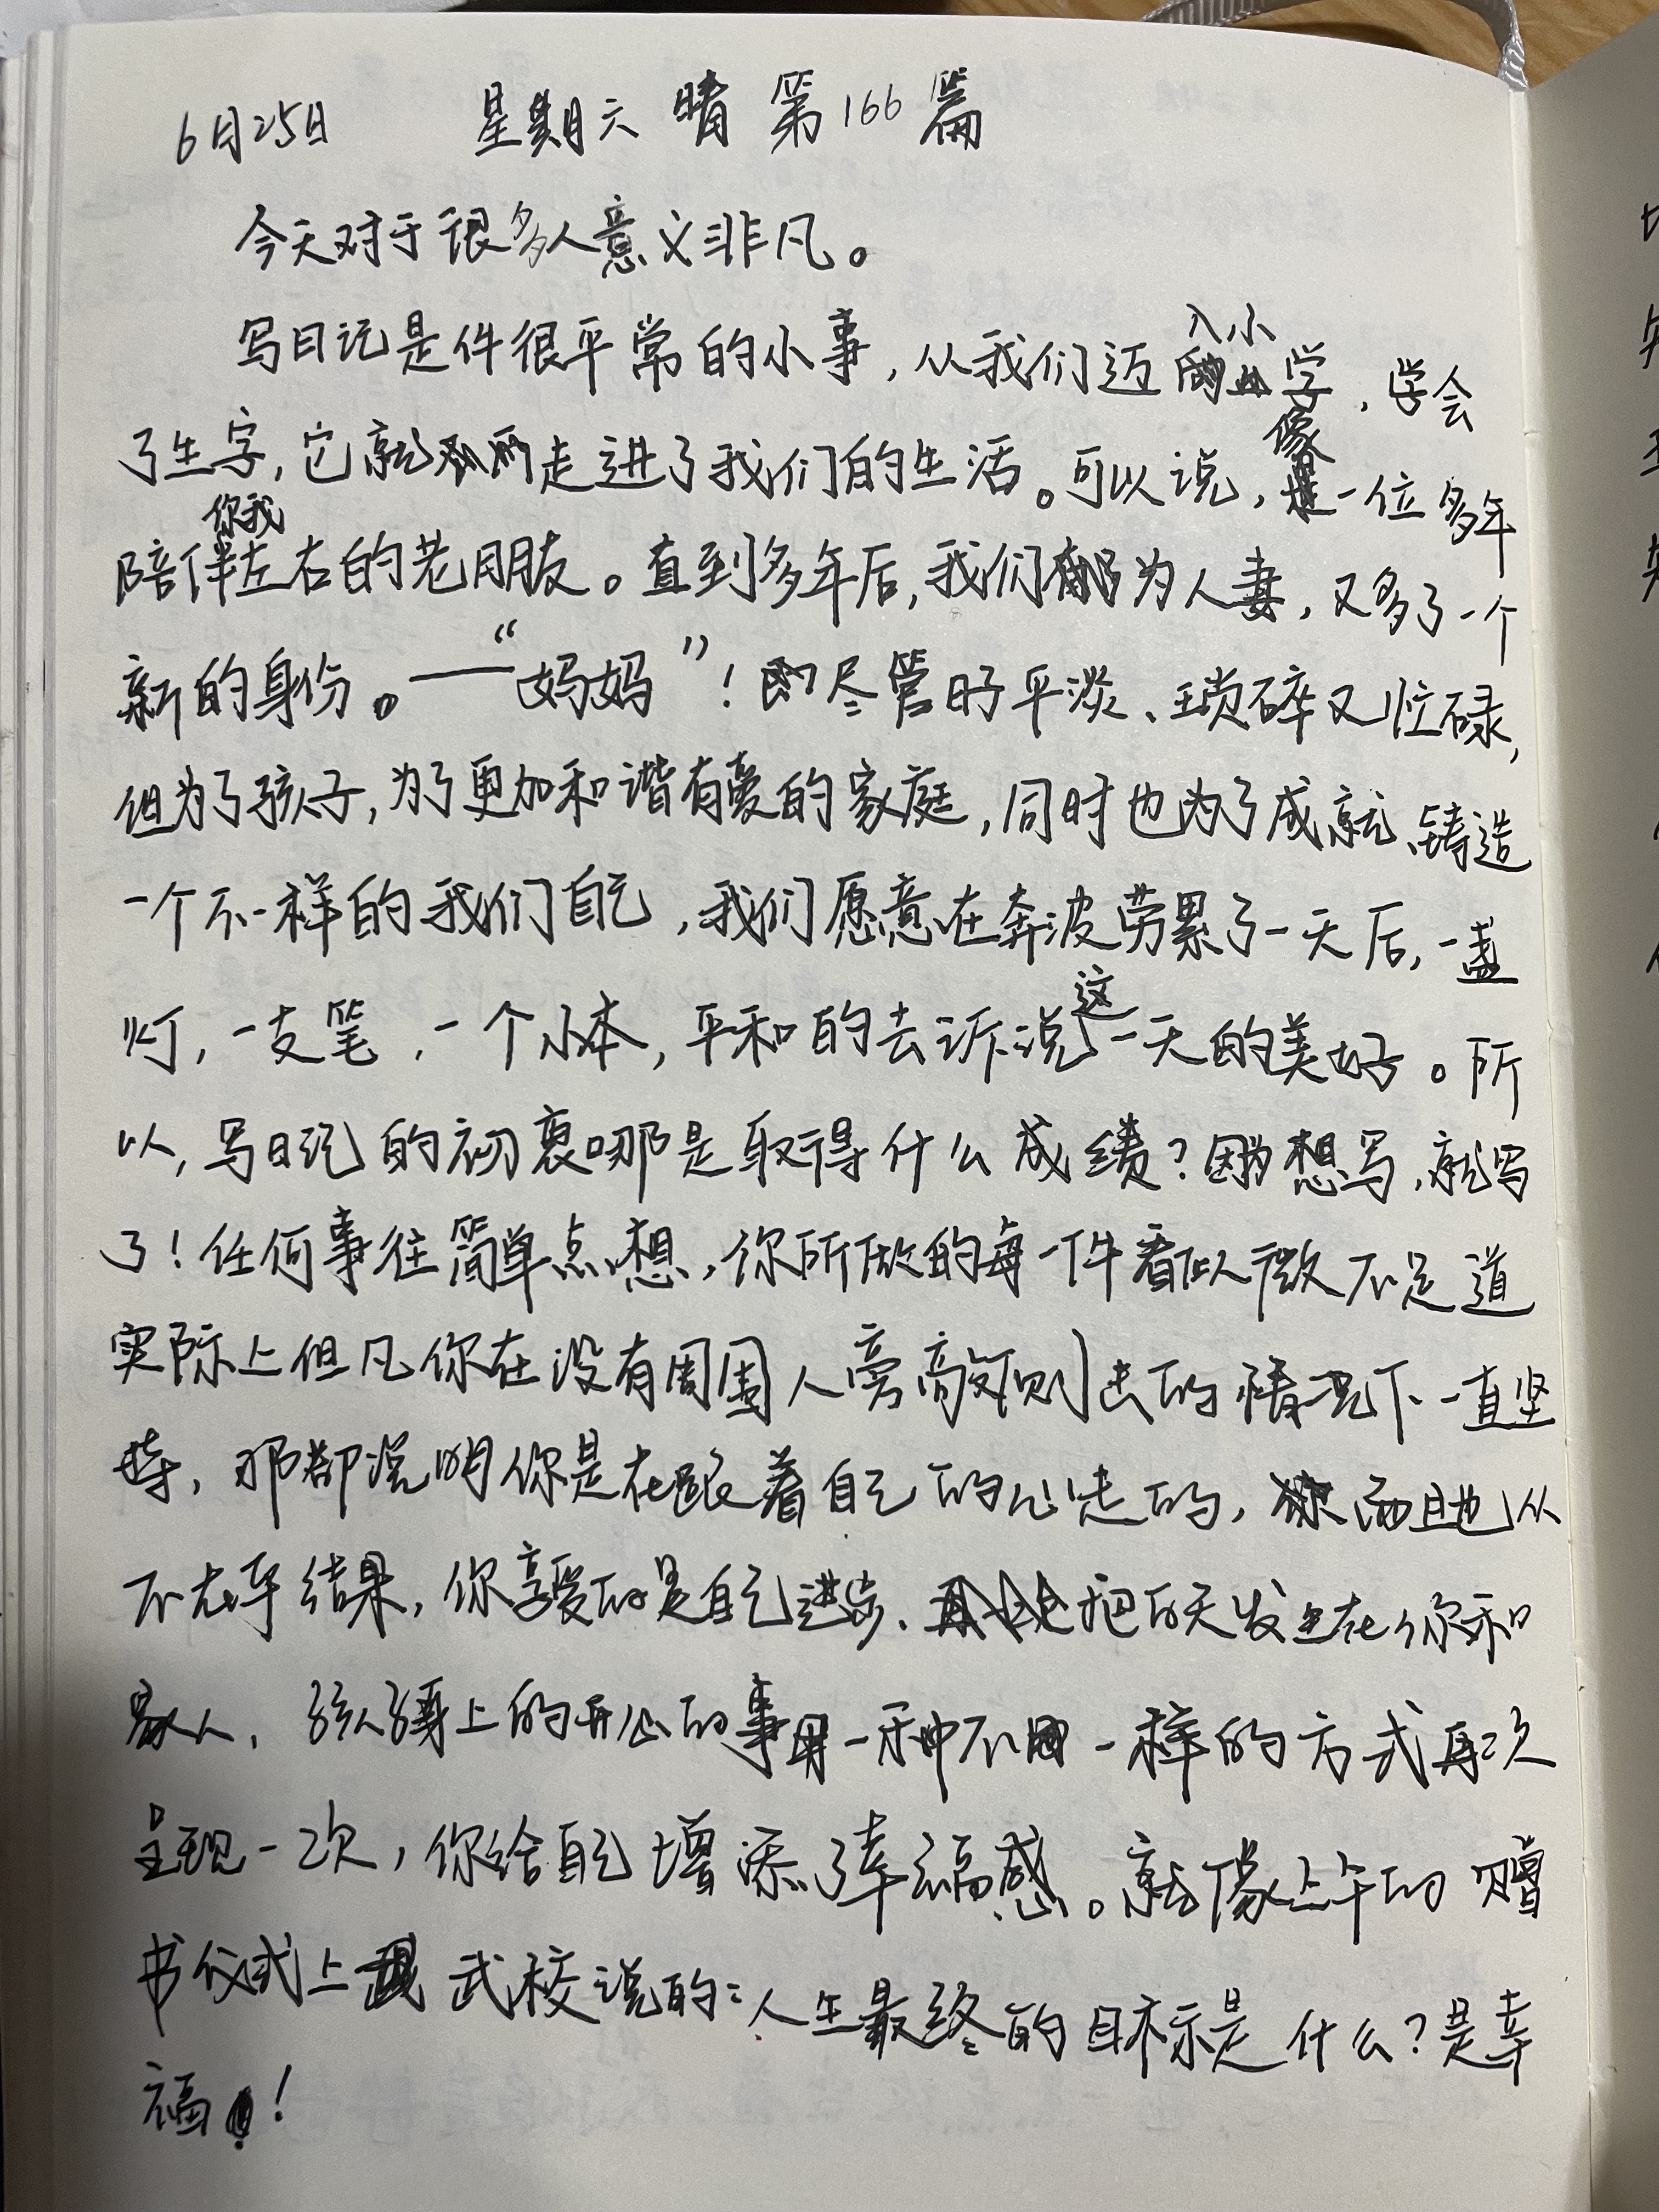 6月25日 星期六 晴 第166篇
今天对于很多人意义非凡。
写日记是件很平常的小事，从我们迈入小学，学会
了生字，它就走进了我们的生活。可以说，像一位多年
陪伴你我左右的老朋友。直到多年后，我们都为人妻，又多了一个
新的身份。——“妈妈”！尽管日子平淡、琐碎又忙碌，
但为了孩子，为了更加和谐有爱的家庭，同时也为了成就、铸造
一个不一样的我们自己，我们愿意在奔波劳累了一天后，一盏
灯，一支笔，一个小本，平和的去诉说这一天的美好。所
以，写日记的初衷哪是取得什么成绩？因为想写，就写
了！任何事往简单点想，你所做的每一件看似微不足道
实际上但凡你在没有周围人旁敲侧击的情况下一直坚
持，那都说明你是在跟着自己的心走的，而且也从
不在乎结果，你享受的是自己进步、把白天发生在你和
家人、孩子身上的开心的事用一种不一样的方式再次
呈现一次，你给自己增添了幸福感。就像上午的赠
书仪式上武校说的：人生最终的目标是什么？是幸
福！